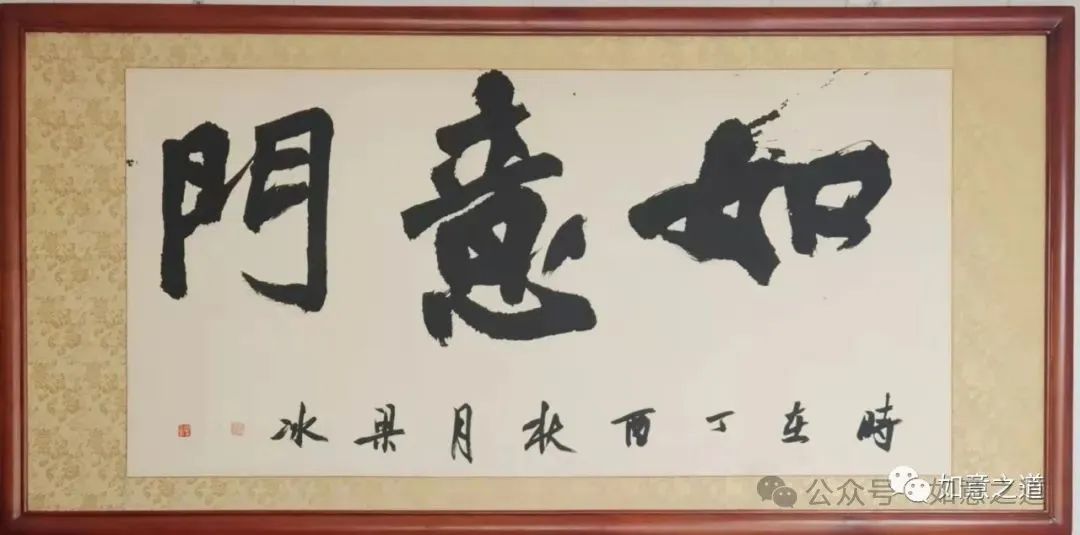 如意門
時在丁酉秋月梁冰
公众号 如意之道
如意之道